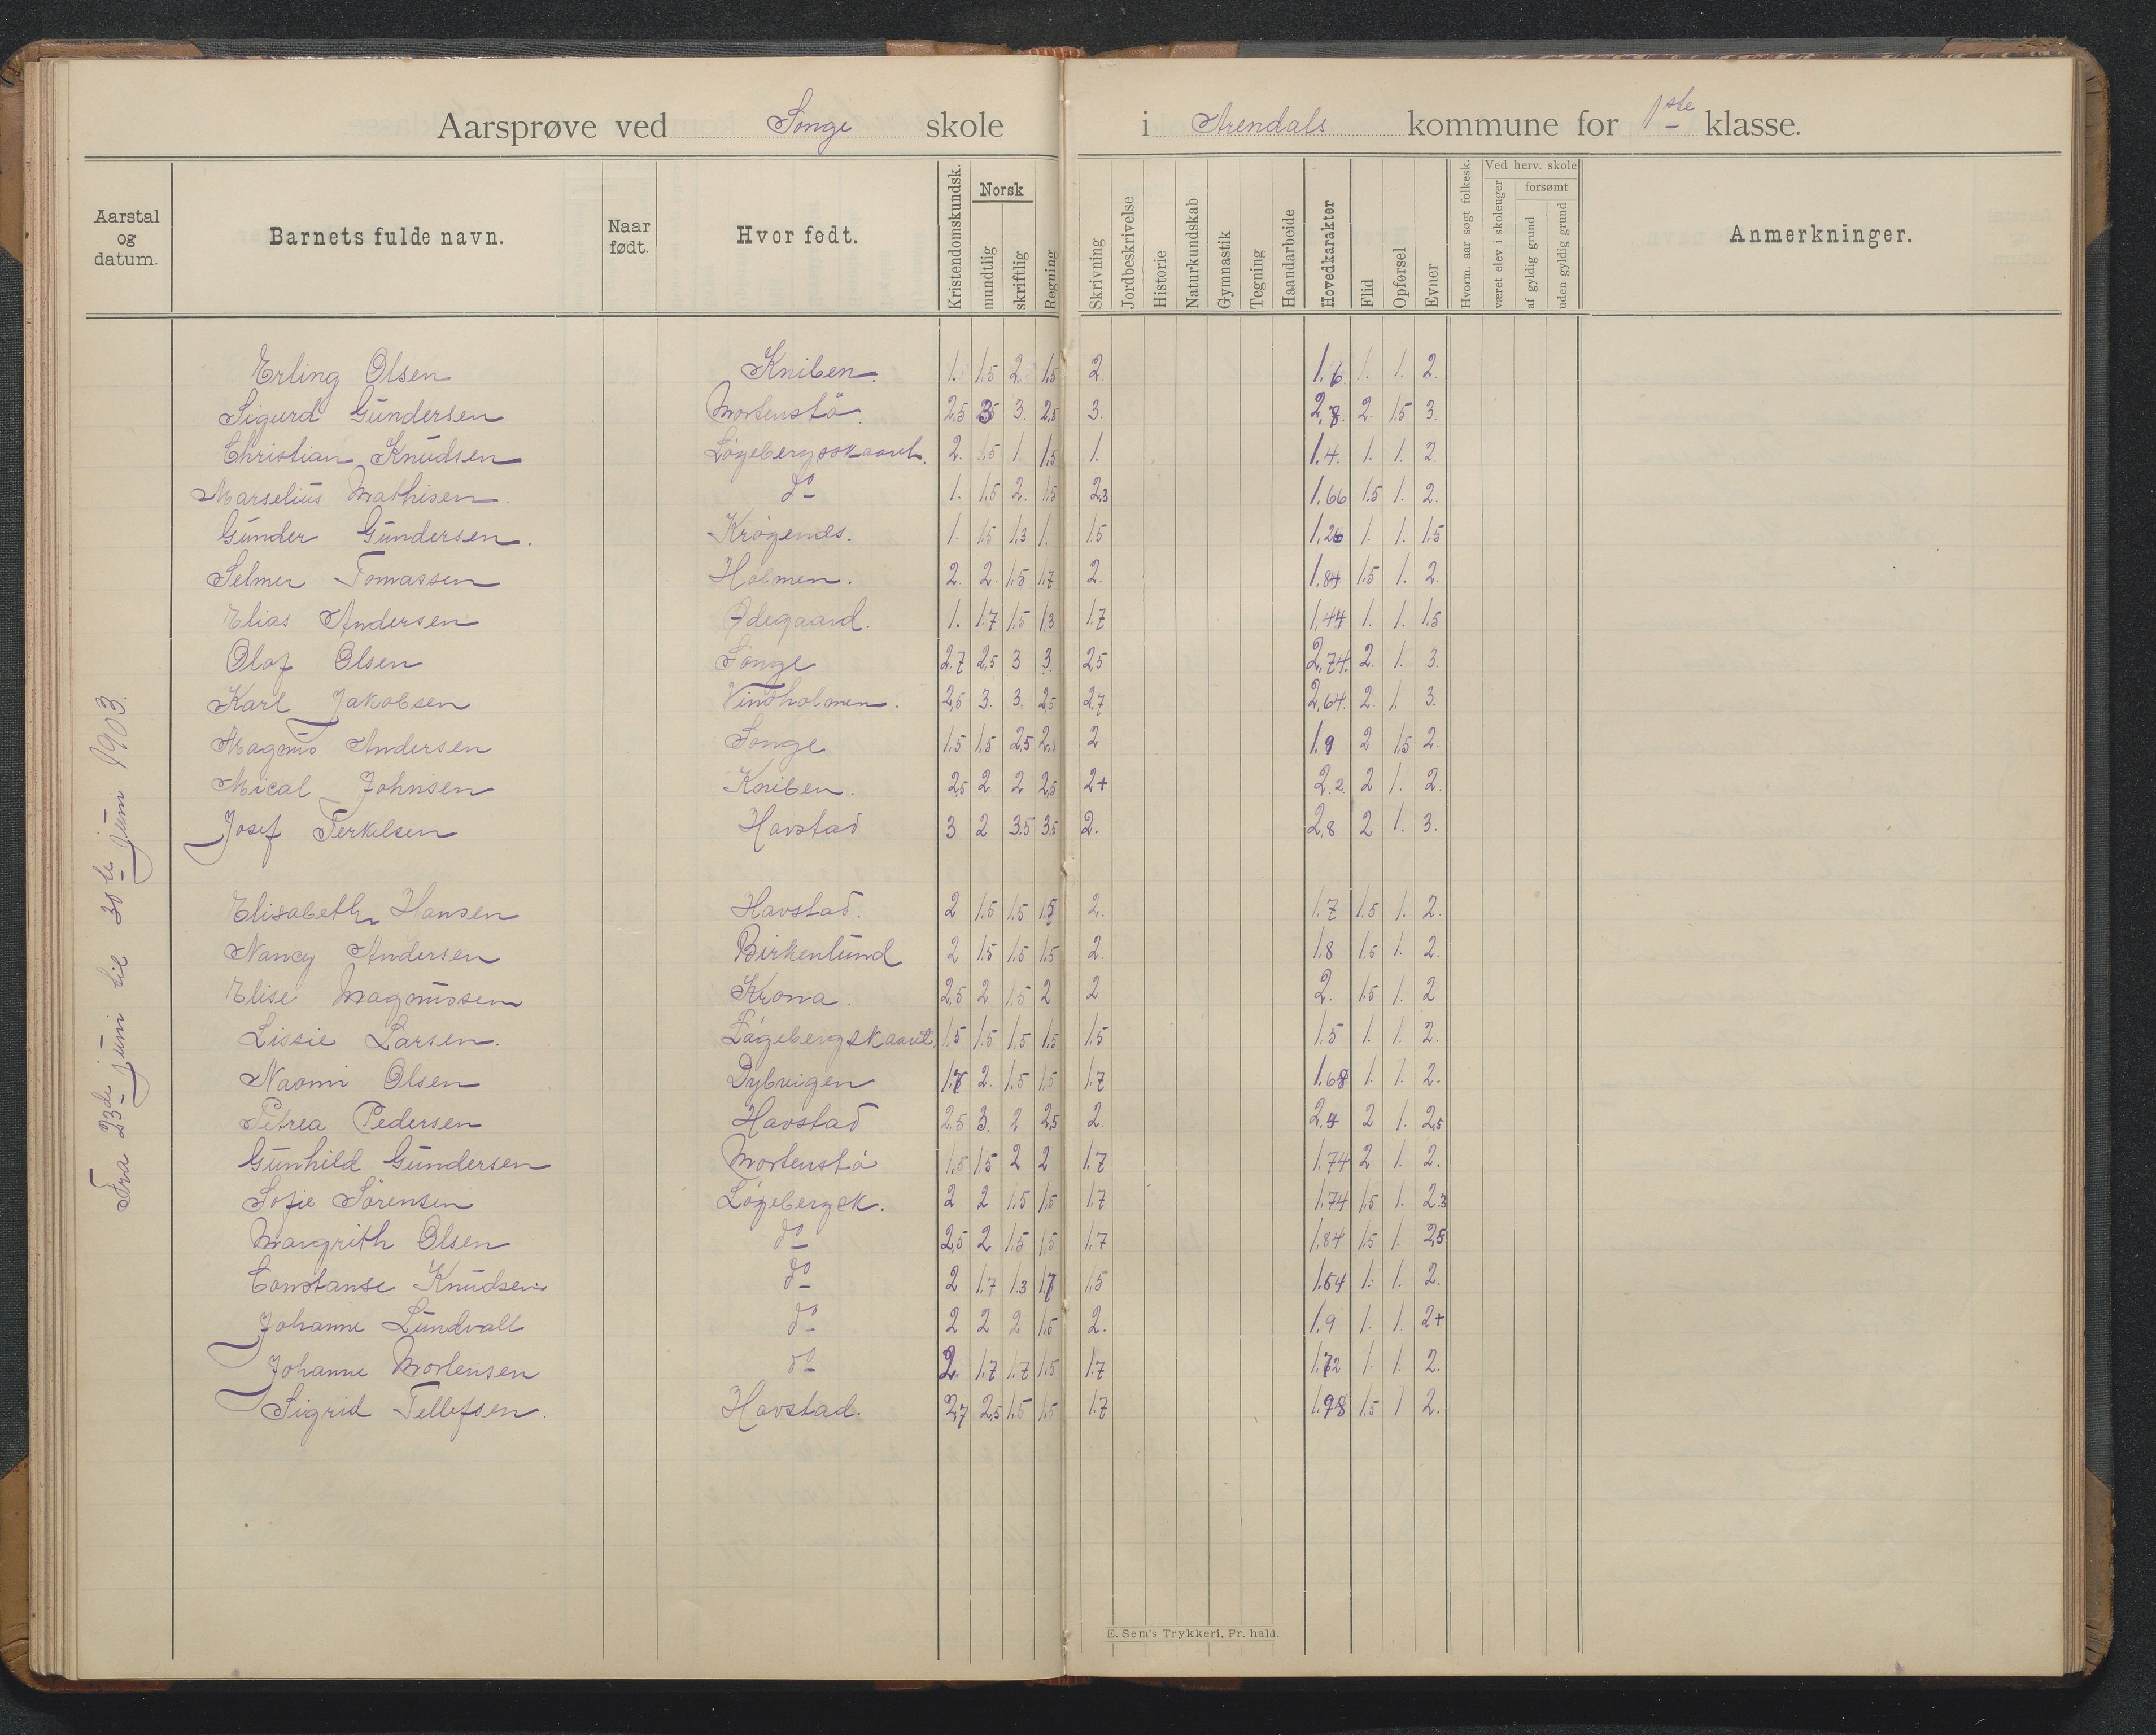 Aarsprøve ved Songe skole i Arendals kommune for 1ste klasse.
Aarstal og datum. Barnets fulde navn. Naar født. Hvor født. Kristendomskundsk. Norsk mundtlig skriftlig Regning Skrivning Jordbeskrivelse Historie Naturkundskab Gymnastik Tegning Haandarbeide Hovedkarakter Flid Opførsel Evner Hvorm. aar søgt folkesk. Ved herv. skole været elev i skoleuger forsømt af gyldig grund uden gyldig grund Anmerkninger.
Fra 23de juni til 30te juni 1903.
Erling Olsen Kniben. 1. 1.5 2. 1.5 2. 1.6 1. 1. 2.
Sigurd Gundersen Mortenstö. 2.5 3 3. 2.5 3. 2.8. 2. 1.5 3.
Christian Knudsen Lögebergsskaaret. 2. 1.5 1 1.5 1. 1.4. 1. 1. 2.
Marselius Mathisen. do 1. 1.5 2. 1.5 2.3 1.66 1.5 1. 2.
Gunder Gundersen. Krögenes. 1. 1.5 1.3 1. 1.5 1.26 1. 1. 1.5
Selmer Tomassen Holmen. 2. 2. 1.5 1.7 2. 1.84 1.5 1. 2.
Elias Andersen Ødegaard. 1. 1.7 1.5 1.3 1.7 1.44 1. 1. 1.5
Olaf Olsen Songe 2.7 2.5 3 3. 2.5 2.74. 2. 1. 3.
Karl Jakobsen Vindholmen. 2.5 3. 3. 2.5 2.7 2.64. 2. 1. 3.
Magnus Andersen Songe 1.5 1.5 2.5 2. 2 1.9 2 1.5 2.
Mical Johnsen Kniben. 2.5 2 2 2.5 2+ 2.2. 2 1. 2.
Josef Terkelsen Havstad 3 2 3.5 3.5 2. 2.8 2 1. 3.
Elisabeth Hansen Havstad. 2 1.5 1.5 1.5 2. 1.7 1.5 1. 2.
Nancy Andersen Birkenlund 2 1.5 1.5 1.5 2. 1.8 1.5 1. 2.
Elise Magnussen Krona. 2.5 2 1.5 2 2 2. 1.5 1. 2
Lissie Larsen. Lögebergskaaret 1.5 1.5 1.5 1.5 1.5 1.5 1. 1. 2.
Naomi Olsen Dybvigen 1.7 2. 1.5 1.5 1.7 1.68 1. 1. 2.
Petrea Pedersen Havstad 2.5 3. 2 2.5 2. 2.4 2 1. 2.5
Gunhild Gundersen Mortenstö 1.5 1.5 2 2 1.7 1.74 2 1. 2.
Sofie Sörensen Lögebergsk. 2 2 1.5 1.5 1.7 1.74 1.5 1. 2.3
Margrith Olsen do 2.5 2 1.5 1.5 1.7 1.84 1.5 1. 2.5
Constanse Knudsen do 2 1.7 1.3 1.7 1.5 1.64 1. 1. 2.
Johanne Lundvall do 2 2 2 1.5 2. 1.9 1. 1. 2+
Johanne Mortensen do 2. 1.7 1.7 1.5 1.7 1.72 1. 1. 2.
Sigrid Tellefsen. Havstad. 2.7 2.5 1.5 1.5 1.7 1.98 1.5 1 2.
E. Sem's Trykkeri, Fr. hald.